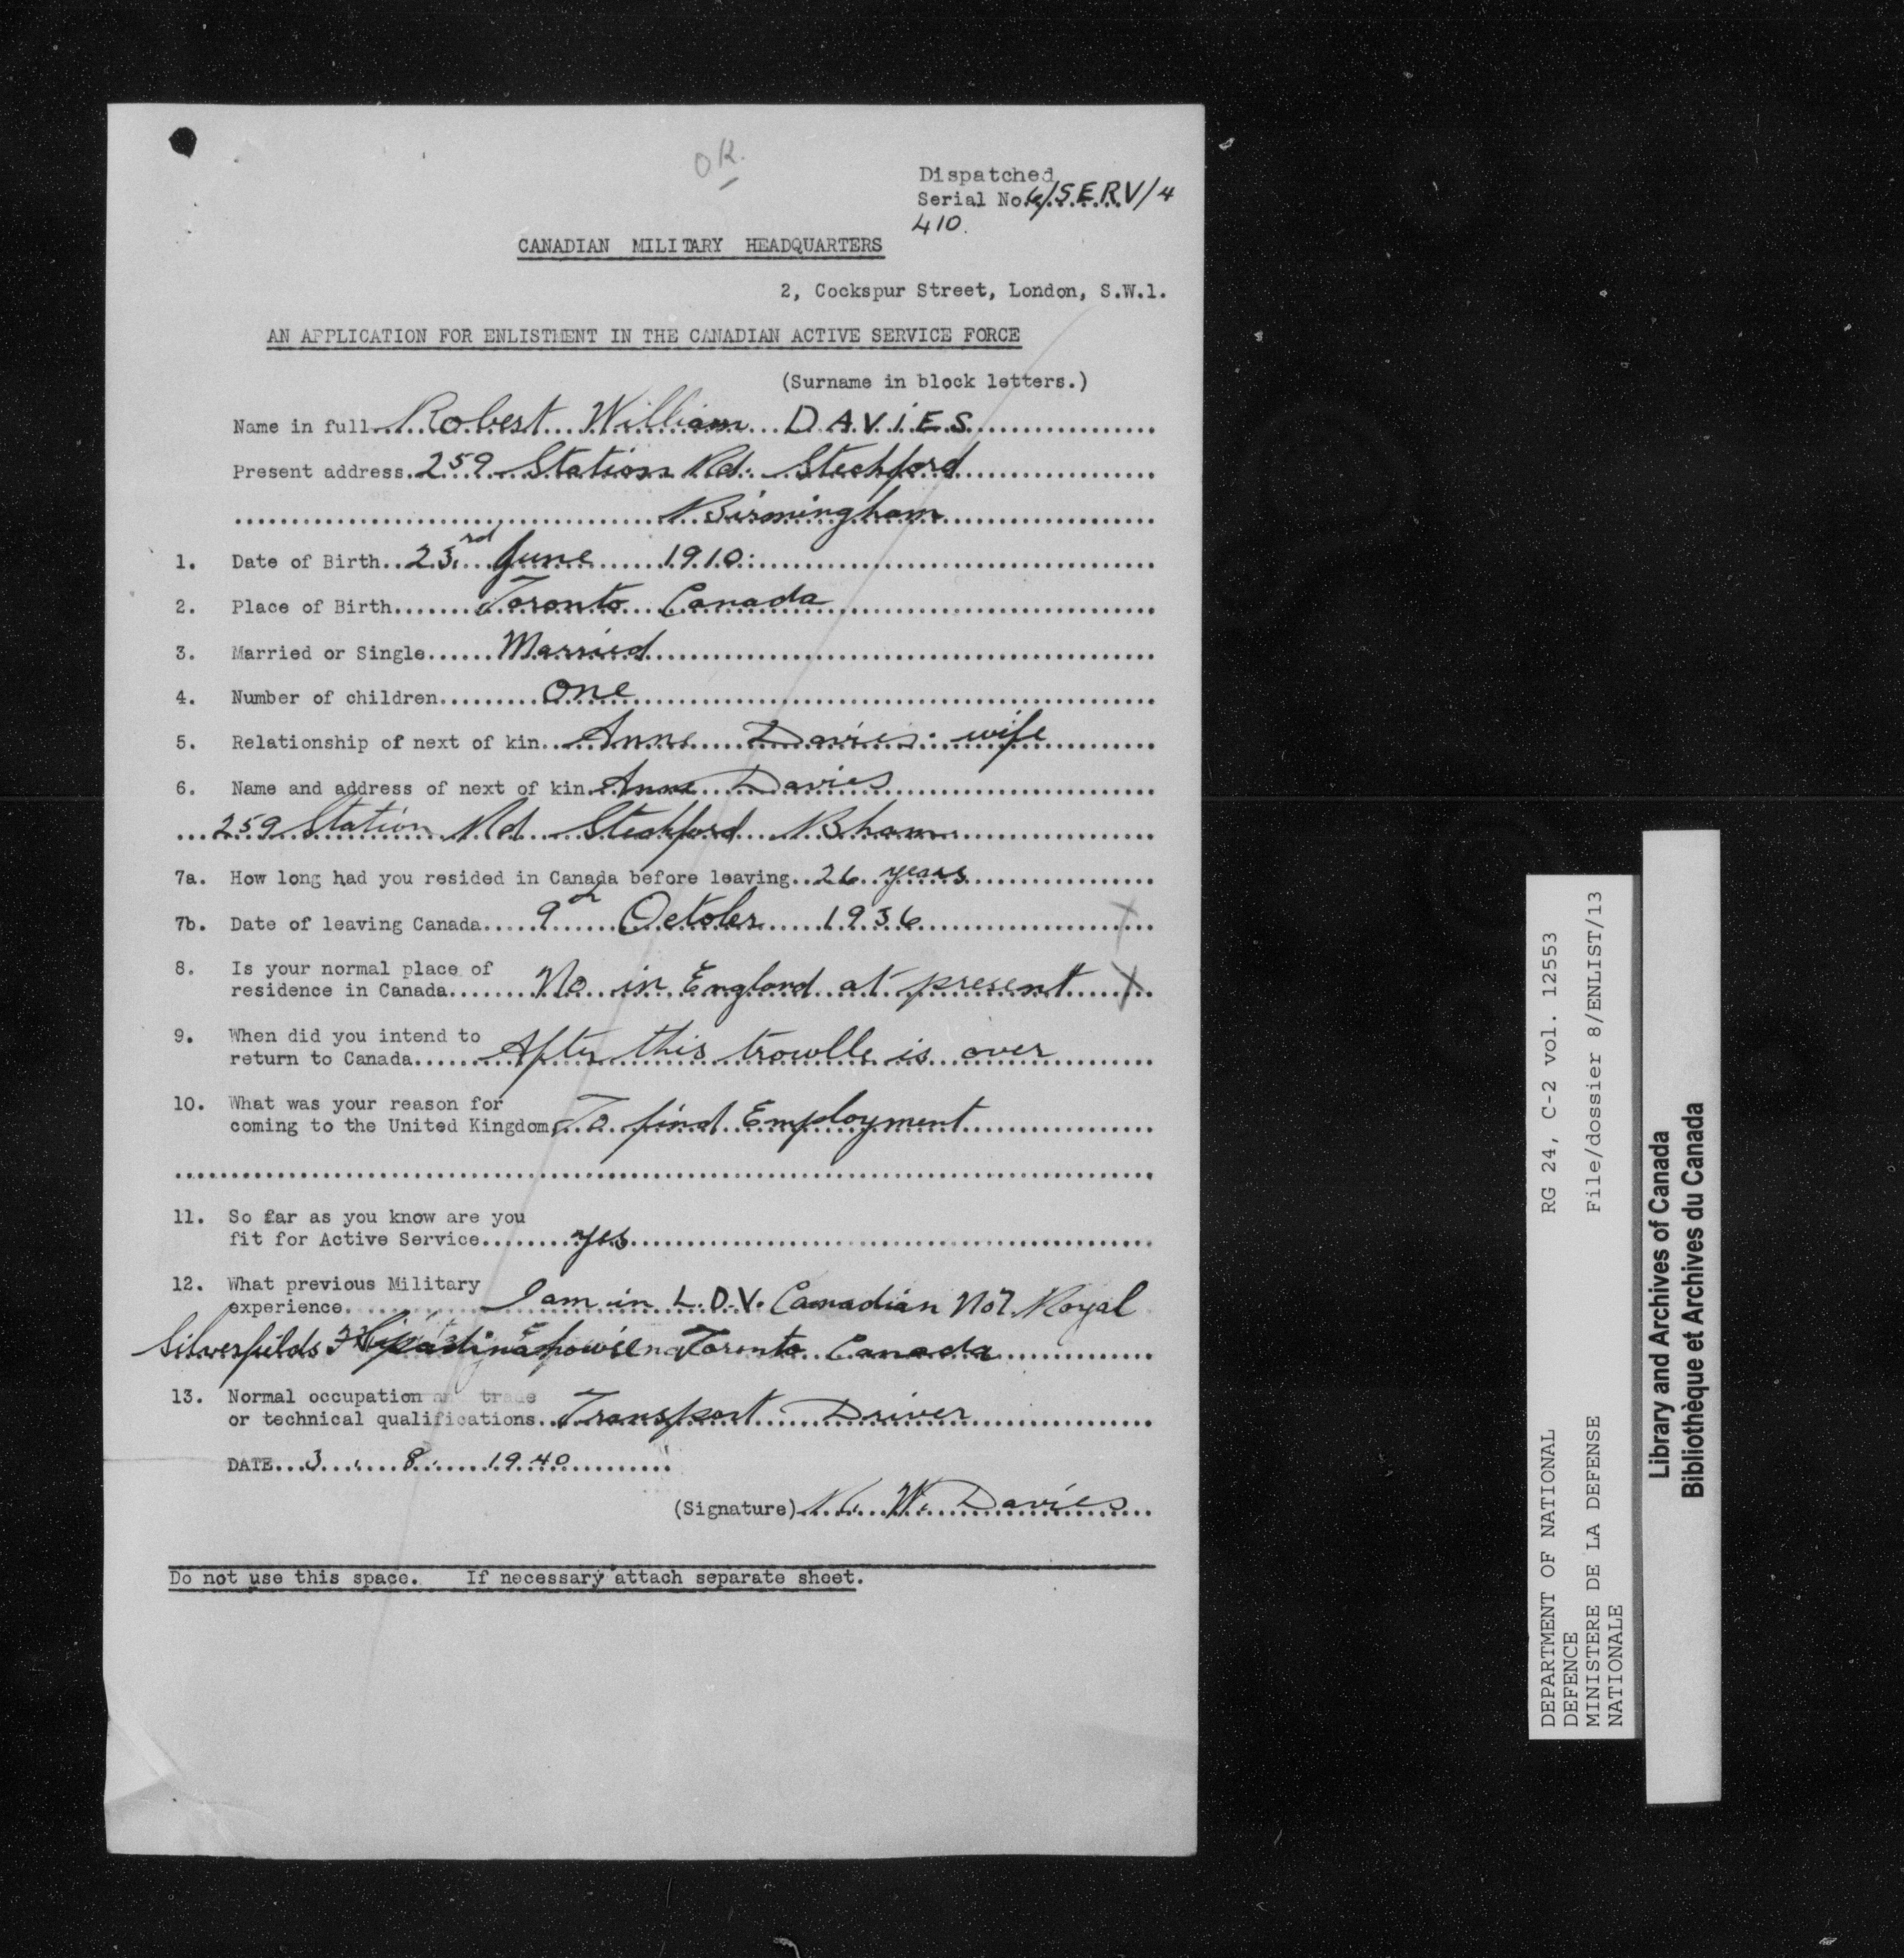 OK.
Dispatched
Serial No. 6/SERV/4
410.
CANADIAN MILITARY HEADQUARTERS
2, Cockspur Street, London, S.W.1.
AN APPLICATION FOR ENLISTMENT IN THE CANADIAN ACTIVE SERVICE FORCE
(Surname in block letters.)
Name in full Robert William DAViES
Present address 259 Station Rd. Stechford
Birmingham
1. Date of Birth 23rd June 1910
2. Place of Birth Toronto Canada
3. Married or Single Married
4. Number of children one
5. Relationship of next of kin Anne Davies. wife
6. Name and address of next of kin Anne Davies
259 Station Rd Stechford Bham
7a. How long had you resided in Canada before leaving 26 years
7b. Date of leaving Canada 9th October 1936 X
8. Is your normal place of
residence in Canada No in England at present X
9. When did you intend to
return to Canada After this trowlle is over
10. What was your reason for
coming to the United Kingdom To find Employment
11. So far as you know are you
fit for Active Service yes
12. What previous Military
experience I am in L.D.V. Canadian No 7 Royal
Toronto Canada
13. Normal occupation trade
or technical qualifications Transport Driver
DATE 3. 8. 1940
(Signature) R. W. Davies
Do not use this space. If necessary attach separate sheet.
DEPARTMENT OF NATIONAL RG 24, C-2 vol. 12553
DEFENCE
MINISTERE DE LA DEFENSE File/dossier 8/ENLIST/13
NATIONALE
Library and Archives of Canada
Bibliothèque et Archives du Canada